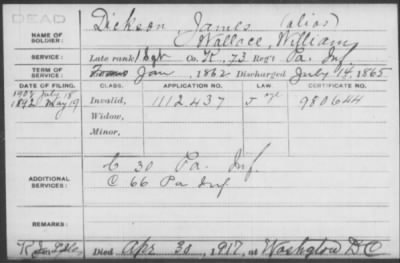 DEAD
Dickson James (alias)
NAME OF SOLDIER: Wallace, William
SERVICE: Late rank 1 Sgt Co. K, 73 Reg't Pa. Inf
TERM OF SERVICE: Jan , 1862 Discharged July 14, 1865
DATE OF FILING. CLASS. APPLICATION NO. LAW. CERTIFICATE NO.
July 18
1892 May 19 Invalid, 1112437 980644
Widow,
Minor,
C 30 Pa. Inf.
ADDITIONAL SERVICES: C 66 Pa Inf
REMARKS:
Died Apr 30, 1917, at Washgton DC